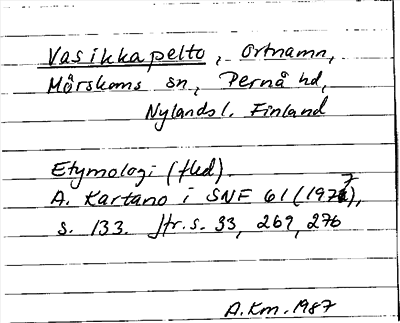 Vasikkapelto, Ortnamn,
Mörskoms sn, Pernå hd,
Nylands l. Finland
Etymologi (fled).
A. Kartano i SNF 61 (1977),
s. 133. Jfr. s. 33, 269, 276
A.Km. 1987